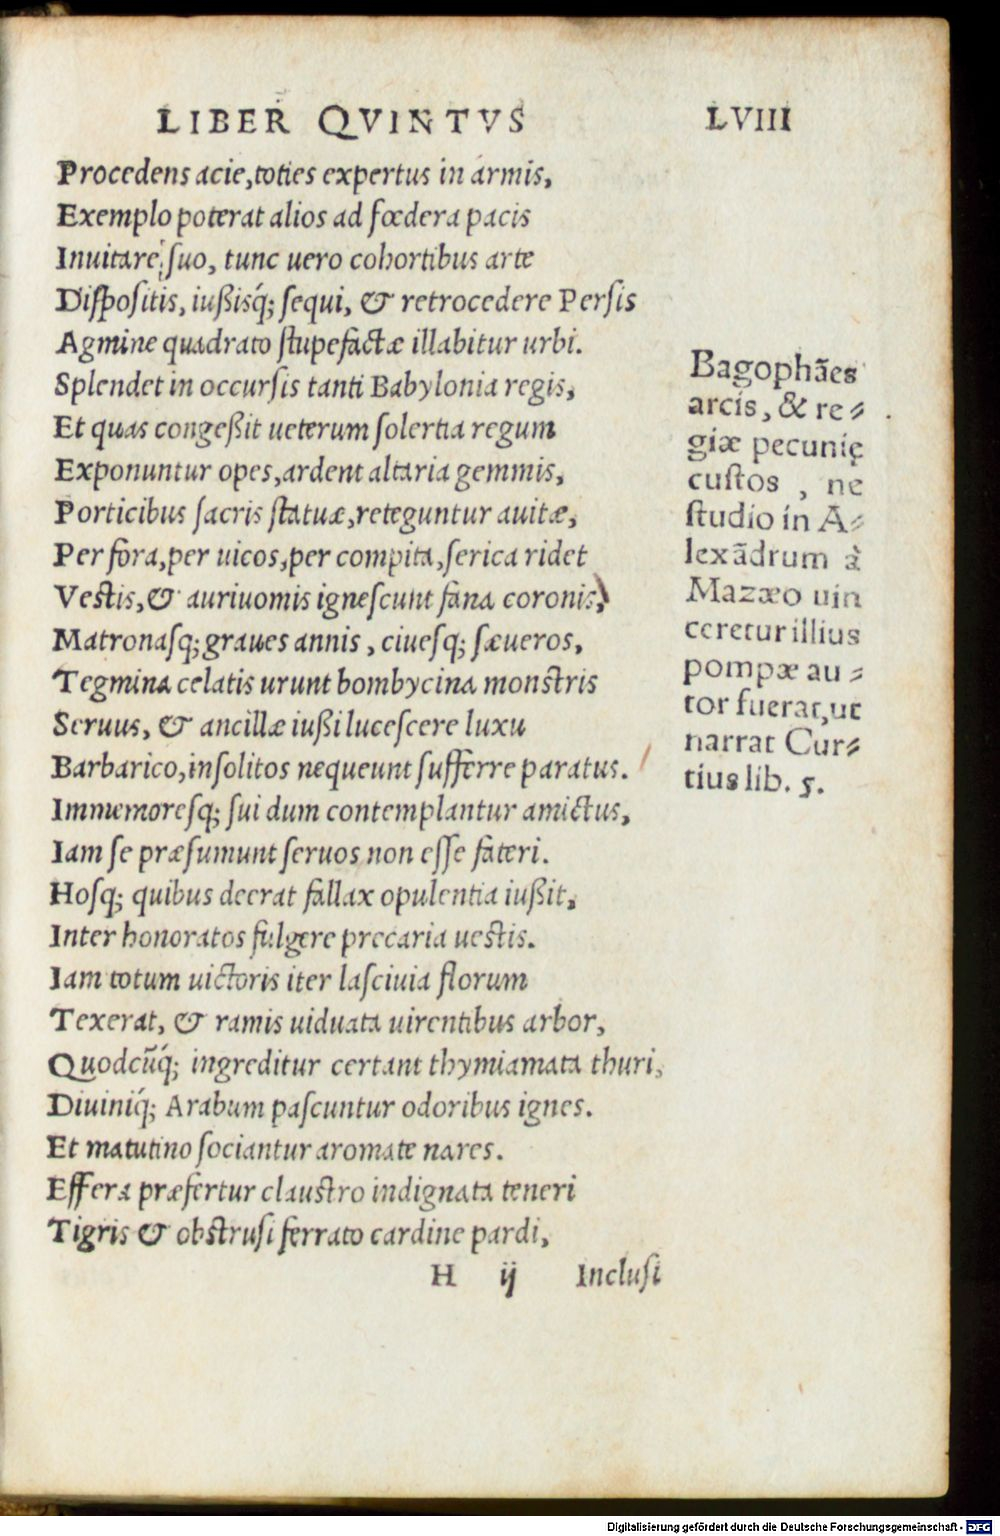 LIBER QVINTVS LVIII
Procedens acie, toties expertus in armis,
Exemplo poterat alios ad fœdera pacis
Inuitare suo, tunc uero cohortibus arte
Dispositis, iußisq́; sequi, & retrocedere Persis
Agmine quadrato stupefactæ illabitur urbi.
Splendet in occursis tanti Babylonia regis,
Et quas congeßit ueterum solertia regum
Exponuntur opes, ardent altaria gemmis,
Porticibus sacris statuæ, reteguntur auitæ,
Per fora, per uicos, per compita, serica ridet
Vestis, & auriuomis ignescunt fana coronis,
Matronasq; graues annis, ciuesq; sæueros,
Tegmina celatis urunt bombycina monstris
Seruus, & ancillæ iußi lucescere luxu
Barbarico, insolitos nequeunt sufferre paratus.
Immemoresq; sui dum contemplantur amictus,
Iam se præsumunt seruos non esse fateri.
Hosq; quibus deerat fallax opulentia iußit,
Inter honoratos fulgere precaria uestis.
Iam totum uictoris iter lasciuia florum
Texerat, & ramis uiduata uirentibus arbor,
Quodcũq́; ingreditur certant thymiamata thuri,
Diuiniq́; Arabum pascuntur odoribus ignes.
Et matutino sociantur aromate nares.
Effera præfertur claustro indignata teneri
Tigris & obstrusi ferrato cardine pardi,
H ij Inclusi
Bagophães
arcis, & re⸗
giæ pecunię
custos , ne
studio in A⸗
lexãdrum à
Mazæo uin
ceretur illius
pompæ au⸗
tor fuerat, ut
narrat Cur⸗
tius lib. 5.
Digitalisierung gefördert durch die Deutsche Forschungsgemeinschaft - DFG